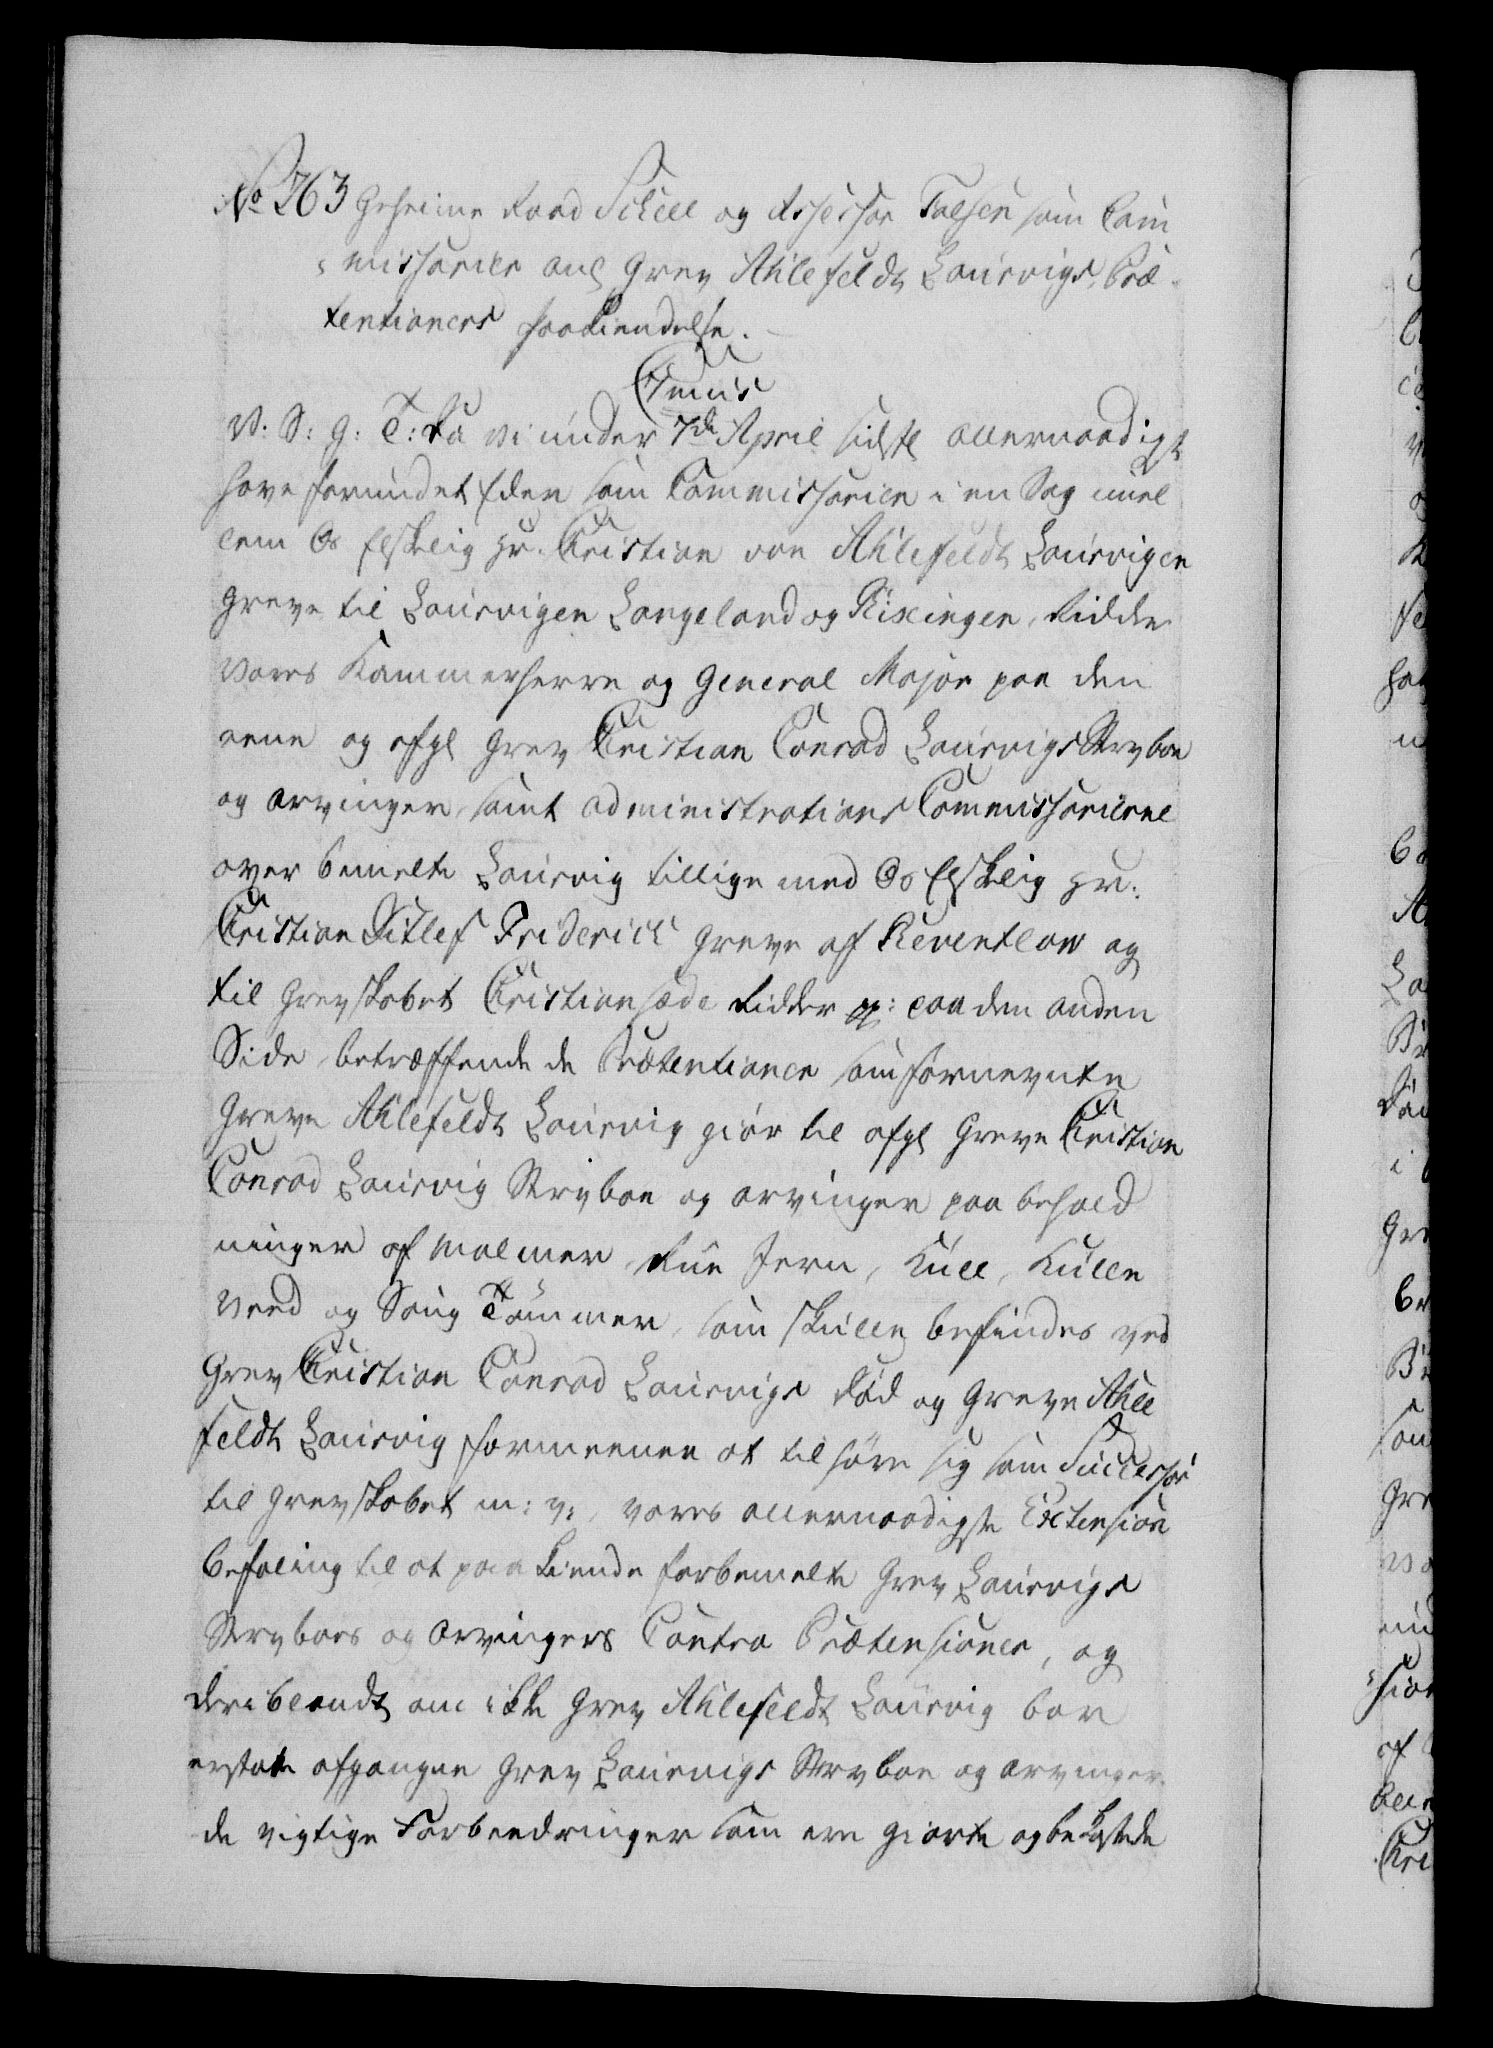 No 763 Geheime Raad Schell og Assessor Falsen som Com
missarier anl Grev Ahlefeldt Laurvigs Præ
tentioners paakiendelse.
C7mus
V: S: G: T: Da vi under 7de April sidstl allernaadigst
have forundet Eder som Commissarier i en Sag mel
lem Os Elskelig Hr. Christian von Ahlefeldt Laurvigen
Greve til Laurvigen Langeland og Rixingen, Ridder
vores Kammerherre og General Major paa den
eene og afgl Grev Christian Conrad Laurvigs Stervboe
og arvinger samt administrations Commissarierne
over bemelte Laurvig tillige med Os Elskelig Hr:
Christian Ditlef Friderich Greve af Reventlow og
til Grevskabet Christiansæde Ridder pp: paa den anden
Side, betræffende de Prætentioner som fornevnte
Greve Ahlefeldt Laurvig giør til afgl Greve Christian
Conrad Laurvig Stervboe og arvinger paa behold
ninger af malmer, Rue Jern, Kull, Kulle
veed og Saug Tømmer, som skulle befindes ved
Grev Christian Conrad Laurvigs Død og Greve Ahle
feldt Laurvig formeener at tilhøre sig som Successor
til Grevskabet m: v:, vores allernaadigste Extension
befaling til at paakiende forbemelte Grev Laurvigs
Stervboes og arvingers Contra Prætensioner, og
deriblandt om ikke Grev Ahlefeldt Laurvig bør
erstate afgangne Grev Laurvigs Stervboe og arvinger
de vigtige Forbeedringer som ere giorte og bekostede